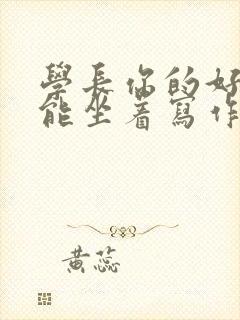 學長你的好
能坐著寫作
黃蕊